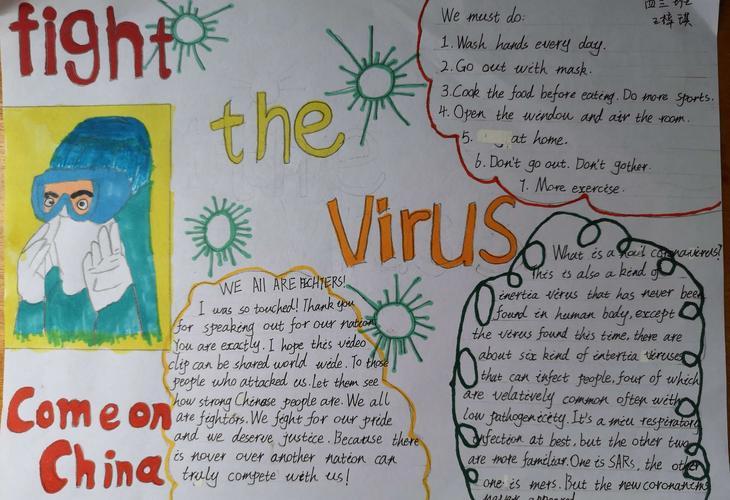 fight
the
Virus
Come on
China
四三班
王梓琪
We must do:
1. Wash hands every day.
2. Go out with mask.
3. Cook the food before eating. Do more sports.
4. Open the window and air the room.
5. at home.
6. Don't go out. Don't gother.
7. More exercise.
WE All ARE FIGHTERS!
I was so touched! Thank you
for speaking out for our nation
You are exactly. I hope this video
clip can be shared world wide. To those
people who attacked us. let them see
how strong Chinese people are. We all
are fightors. We fight for our pride
and we deserve justice. Because there
is nover over another nation can
truly compete with us!
What is a coronavirus?
This is also a kind of
inertia virus that has never been
found in human body, except
the virus found this time, there are
about six kind of intertia viruses
that can infect people, four of which
are velatively common often with
low pathogenicity. It's a micu respiratory
infection at best, but the other two
are more familiar. One is SARs, the other
one is mers. But the new coronavirus
never appeared